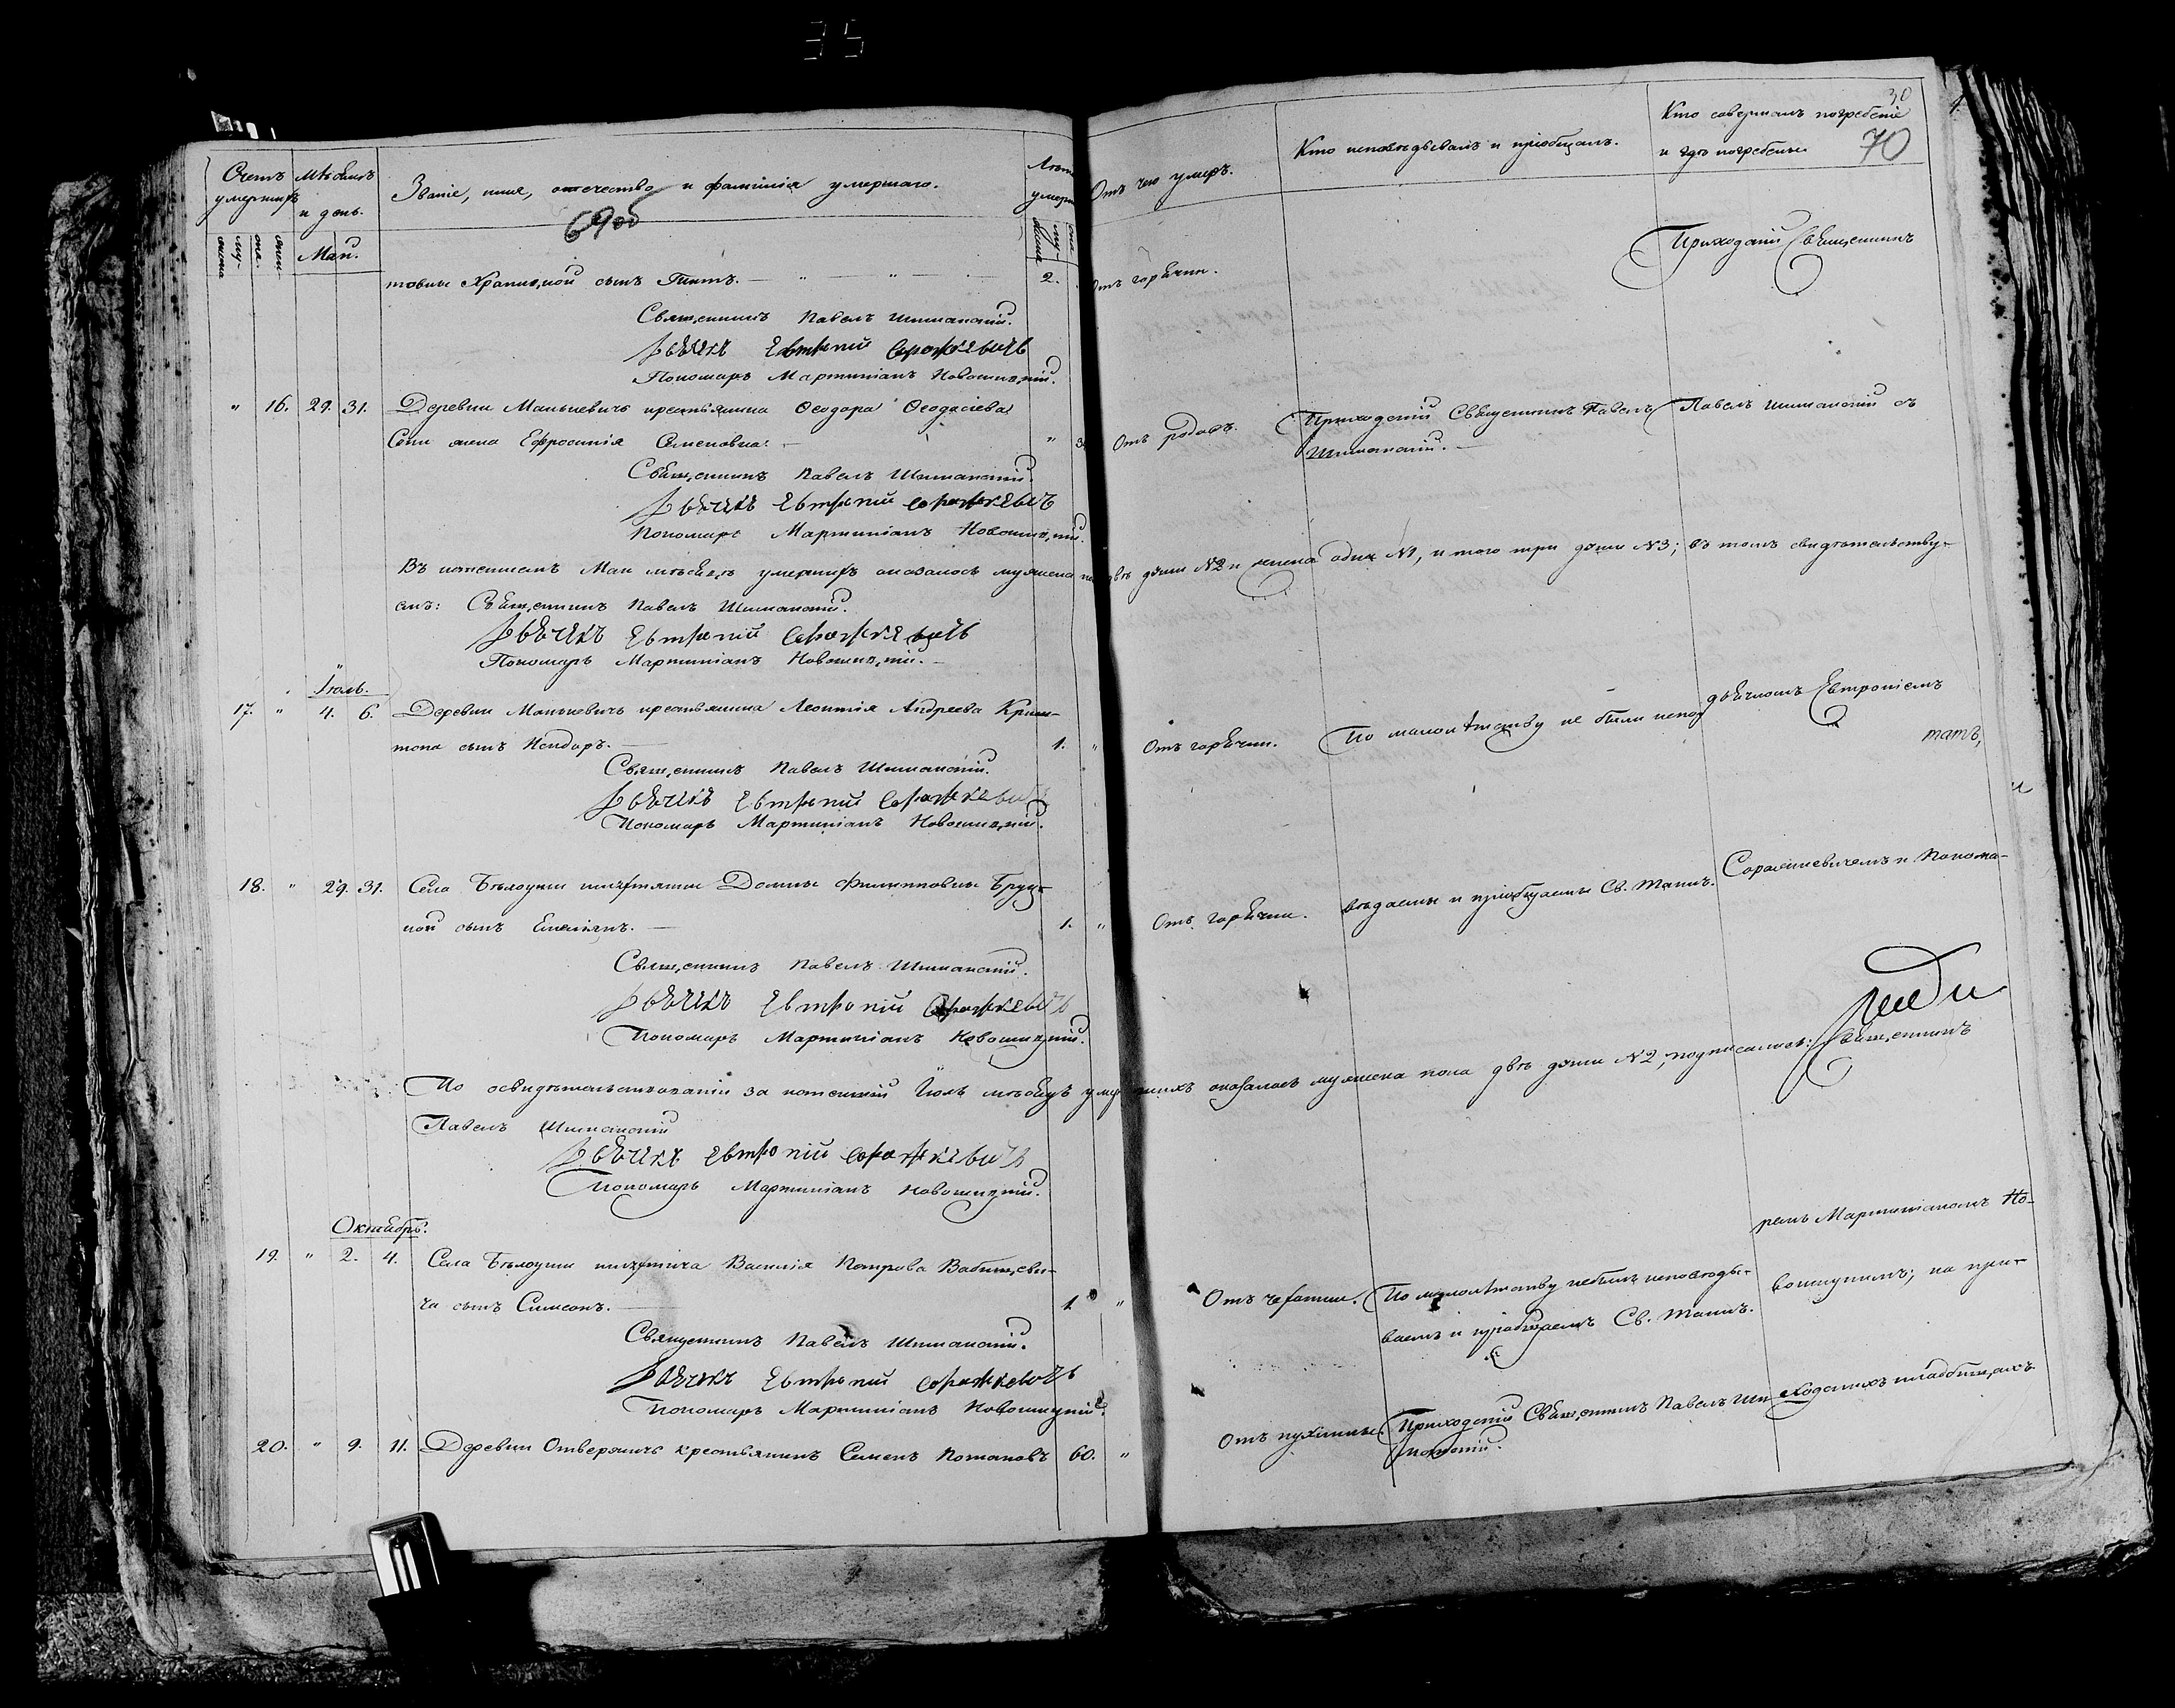 35
30
70
Счетъ умершихъ
Мѣсяцъ и день.
Званіе, имя, отечество и фамилія умершаго.
Лѣта умерш
Отъ чего умеръ.
Кто исповѣдывалъ и пріобщалъ.
Кто совершалъ погребеніе
и гдѣ погребены
69об
Маи.
сынъ Титъ. 2. Отъ горячки. Приходскій Священникъ
Священникъ Павелъ Шиманскій.
Дьячкъ Евтропій Сорожкевичъ
Пономарь Мартиніанъ
" 16. 29. 31. Деревни Манькевичъ крестьянина Ѳеодора Ѳеодосіева
жена Ефросинія Семеновна. " Отъ родовъ. Приходскій Священникъ Павелъ Шиманскій. Павелъ Шиманскій съ
Священникъ Павелъ Шиманскій.
Дьячкъ Евтропій Сорожкевичъ
Пономарь Мартиніанъ
Въ истекшемъ Маи мѣсяцѣ умершихъ оказалось мужеска по двѣ души №2 и женска одна №1, и того три души №3; въ томъ свидѣтельству-
емъ: Священникъ Павелъ Шиманскій.
Дьячкъ Евтропій Сорожкевичъ
Пономарь Мартиніанъ
Іюль.
17. " 4. 6. Деревни Манькевичъ крестьянина Леонтія Андреева
сынъ Исидоръ. 1. " Отъ горячки. По малолѣтству не были испо дьячкомъ Евтропіемъ
Священникъ Павелъ Шиманскій.
Дьячкъ Евтропій Сорожкевичъ
Пономарь Мартиніанъ
18. " 29. 31. Села Бѣлоуши Домны Филипповны
сынъ Емеліянъ. 1. " Отъ горячки. вѣдаемы и пріобщаемы Св. Таинъ. Сорожкевичемъ и Понома-
Священникъ Павелъ Шиманскій.
Дьячкъ Евтропій Сорожкевичъ
Пономарь Мартиніанъ
По освидѣтельствованіи за истекшій Іюль мѣсяцъ умершихъ оказалось мужеска пола двѣ души №2, подписались: Священникъ
Павелъ Шиманскій
Дьячкъ Евтропій Сорожкевичъ
Пономарь Мартиніанъ
Октябрь.
19. " 2. 4. Села Бѣлоуши Василія Петрова
ча сынъ Симеонъ. 1. " Отъ чесотки. По малолѣтству небылъ исповѣды-
ваемъ и пріобщаемъ Св. Таинъ.
ремъ Мартиніаномъ Но-
на при-
Священникъ Павелъ Шиманскій.
Дьячкъ Евтропій Сорожкевичъ
Пономарь Мартиніанъ
20. " 9. 11. Деревни Отвержичъ крестьянинъ Семенъ Потаповъ 60. " Отъ пухлины Приходскій Священникъ Павелъ Ши ходскихъ кладбищахъ